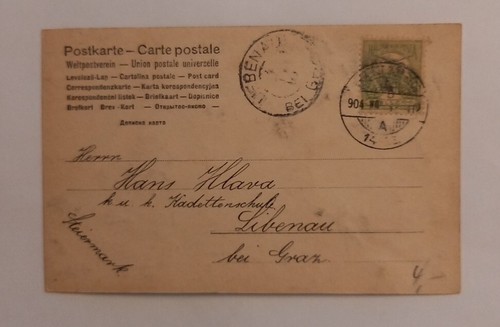 Postkarte – Carte postale
Weltpostverein – Union postale universelle
Levelező-Lap – Cartolina postale – Post card
Correspondenzkarte – Karta korespondencyjna
Korespondenční lístek – Briefkaart – Dopisnice
Brefkort Brev-Kort – Открытое письмо
Дописна карта
LIEBENAU
BEI
A
Herrn
Hans Hlava
k u. k. Kadettenschule
Libenau
bei Graz.
Steiermark
4,-